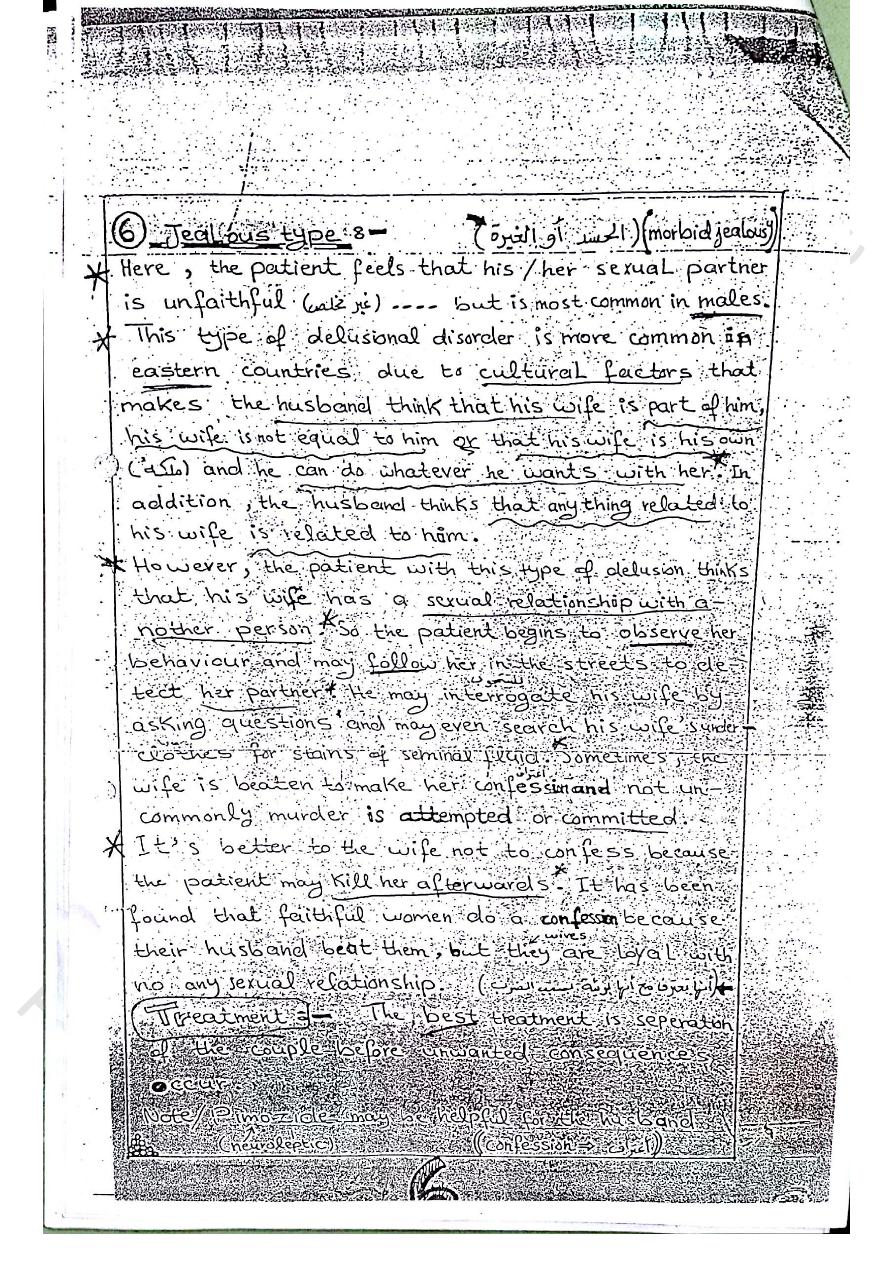 6 Jealous type :- (الحسد أو الغيرة) (morbid jealousy)
* Here , the patient feels that his / her sexual partner
is unfaithful (غير مخلص) ---- but is most common in males.
* This type of delusional disorder is more common in
eastern countries due to cultural factors that
makes the husband think that his wife is part of him,
his wife is not equal to him or that his wife is his own
(ملكه) and he can do whatever he wants with her * In
addition , the husband thinks that anything related to
his wife is related to him.
* However, the patient with this type of delusion thinks
that his wife has a sexual relationship with a-
nother person. * So the patient begins to observe her
behaviour and may follow her in the streets to de-
tect her partner * He may interrogate his wife by
asking questions and may even search his wife's under-
clothes for stains of seminal fluid. * Sometimes, the
اعتراف
wife is beaten to make her confession and not un-
commonly murder is attempted or committed.
* It's better to the wife not to confess because
the patient may kill her afterwards *. It has been
found that faithful women do a confession because
wives
their husband beat them, but they are loyal with
no any sexual relationship.
Treatment :- The best treatment is seperation
of the couple before unwanted consequences
occur.
Note/ Pimozide may be helpful for the husband
(neuroleptic) (confession → اعتراف)
6